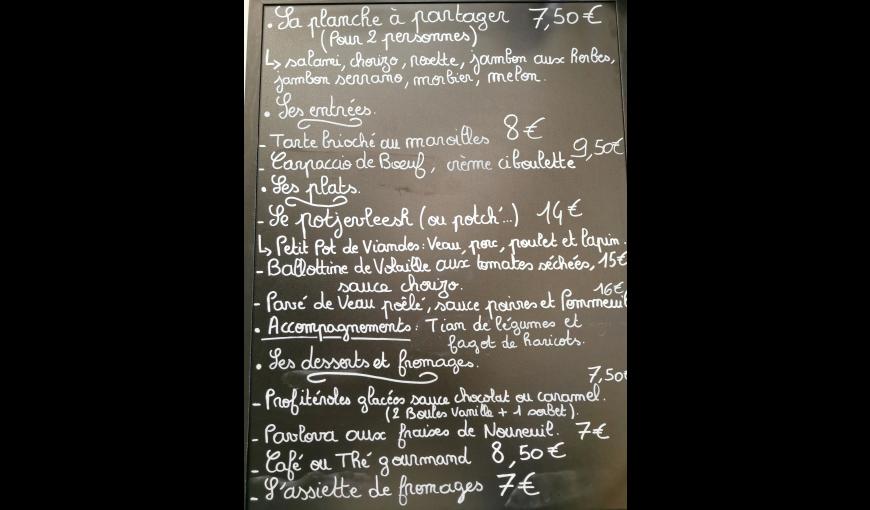 • La planche à partager 7,50€
(Pour 2 personnes)
↳ salami, chorizo, rosette, jambon aux herbes,
jambon serrano, morbier, melon.
• Les entrées.
- Tarte brioché au maroilles 8€
- Carpaccio de Bœuf, crème ciboulette 9,50€
• Les plats.
- Le potjevleesh (ou potch'...) 14€
↳ Petit Pot de Viandes: Veau, porc, poulet et lapin.
- Ballottine de Volaille aux tomates séchées, 15€
sauce chorizo.
- Pavé de Veau poêlé, sauce poivres et Pommeuil 16€
• Accompagnements: Tian de légumes et
fagot de haricots.
• Les desserts et fromages.
- Profitéroles glacées sauce chocolat ou caramel. 7,50
(2 Boules vanille + 1 sorbet).
- Pavlova aux fraises de Noureuil. 7€
- Café ou Thé gourmand 8,50€
- L'assiette de fromages 7€